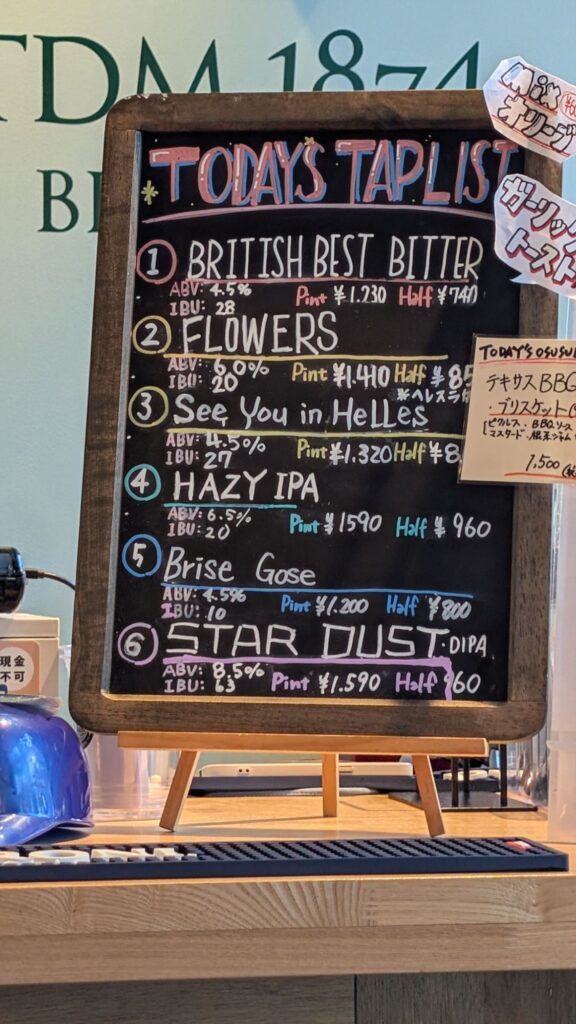 TDM 1874
TODAY'S TAPLIST
① BRITISH BEST BITTER
ABV: 4.5% Pint ¥1.230 Half ¥740
IBU: 28
② FLOWERS
ABV: 6.0% Pint ¥1.410 Half ¥85
IBU: 20
③ See You in Helles
ABV: 4.5% Pint ¥1.320 Half ¥8
IBU: 27
④ HAZY IPA
ABV: 6.5% Pint ¥1590 Half ¥960
IBU: 20
⑤ Brise Gose
ABV: 4.5% Pint ¥1.200 Half ¥800
IBU: 10
⑥ STAR DUST・DIPA
ABV: 8.5% Pint ¥1.590 Half 960
IBU: 63
Mix
オリーブ
ガーリック
トースト
TODAY'S OSUSU
テキサスBBQ
・ブリスケット
ピクルス・BBQソース
マスタード
1,500
現金
不可